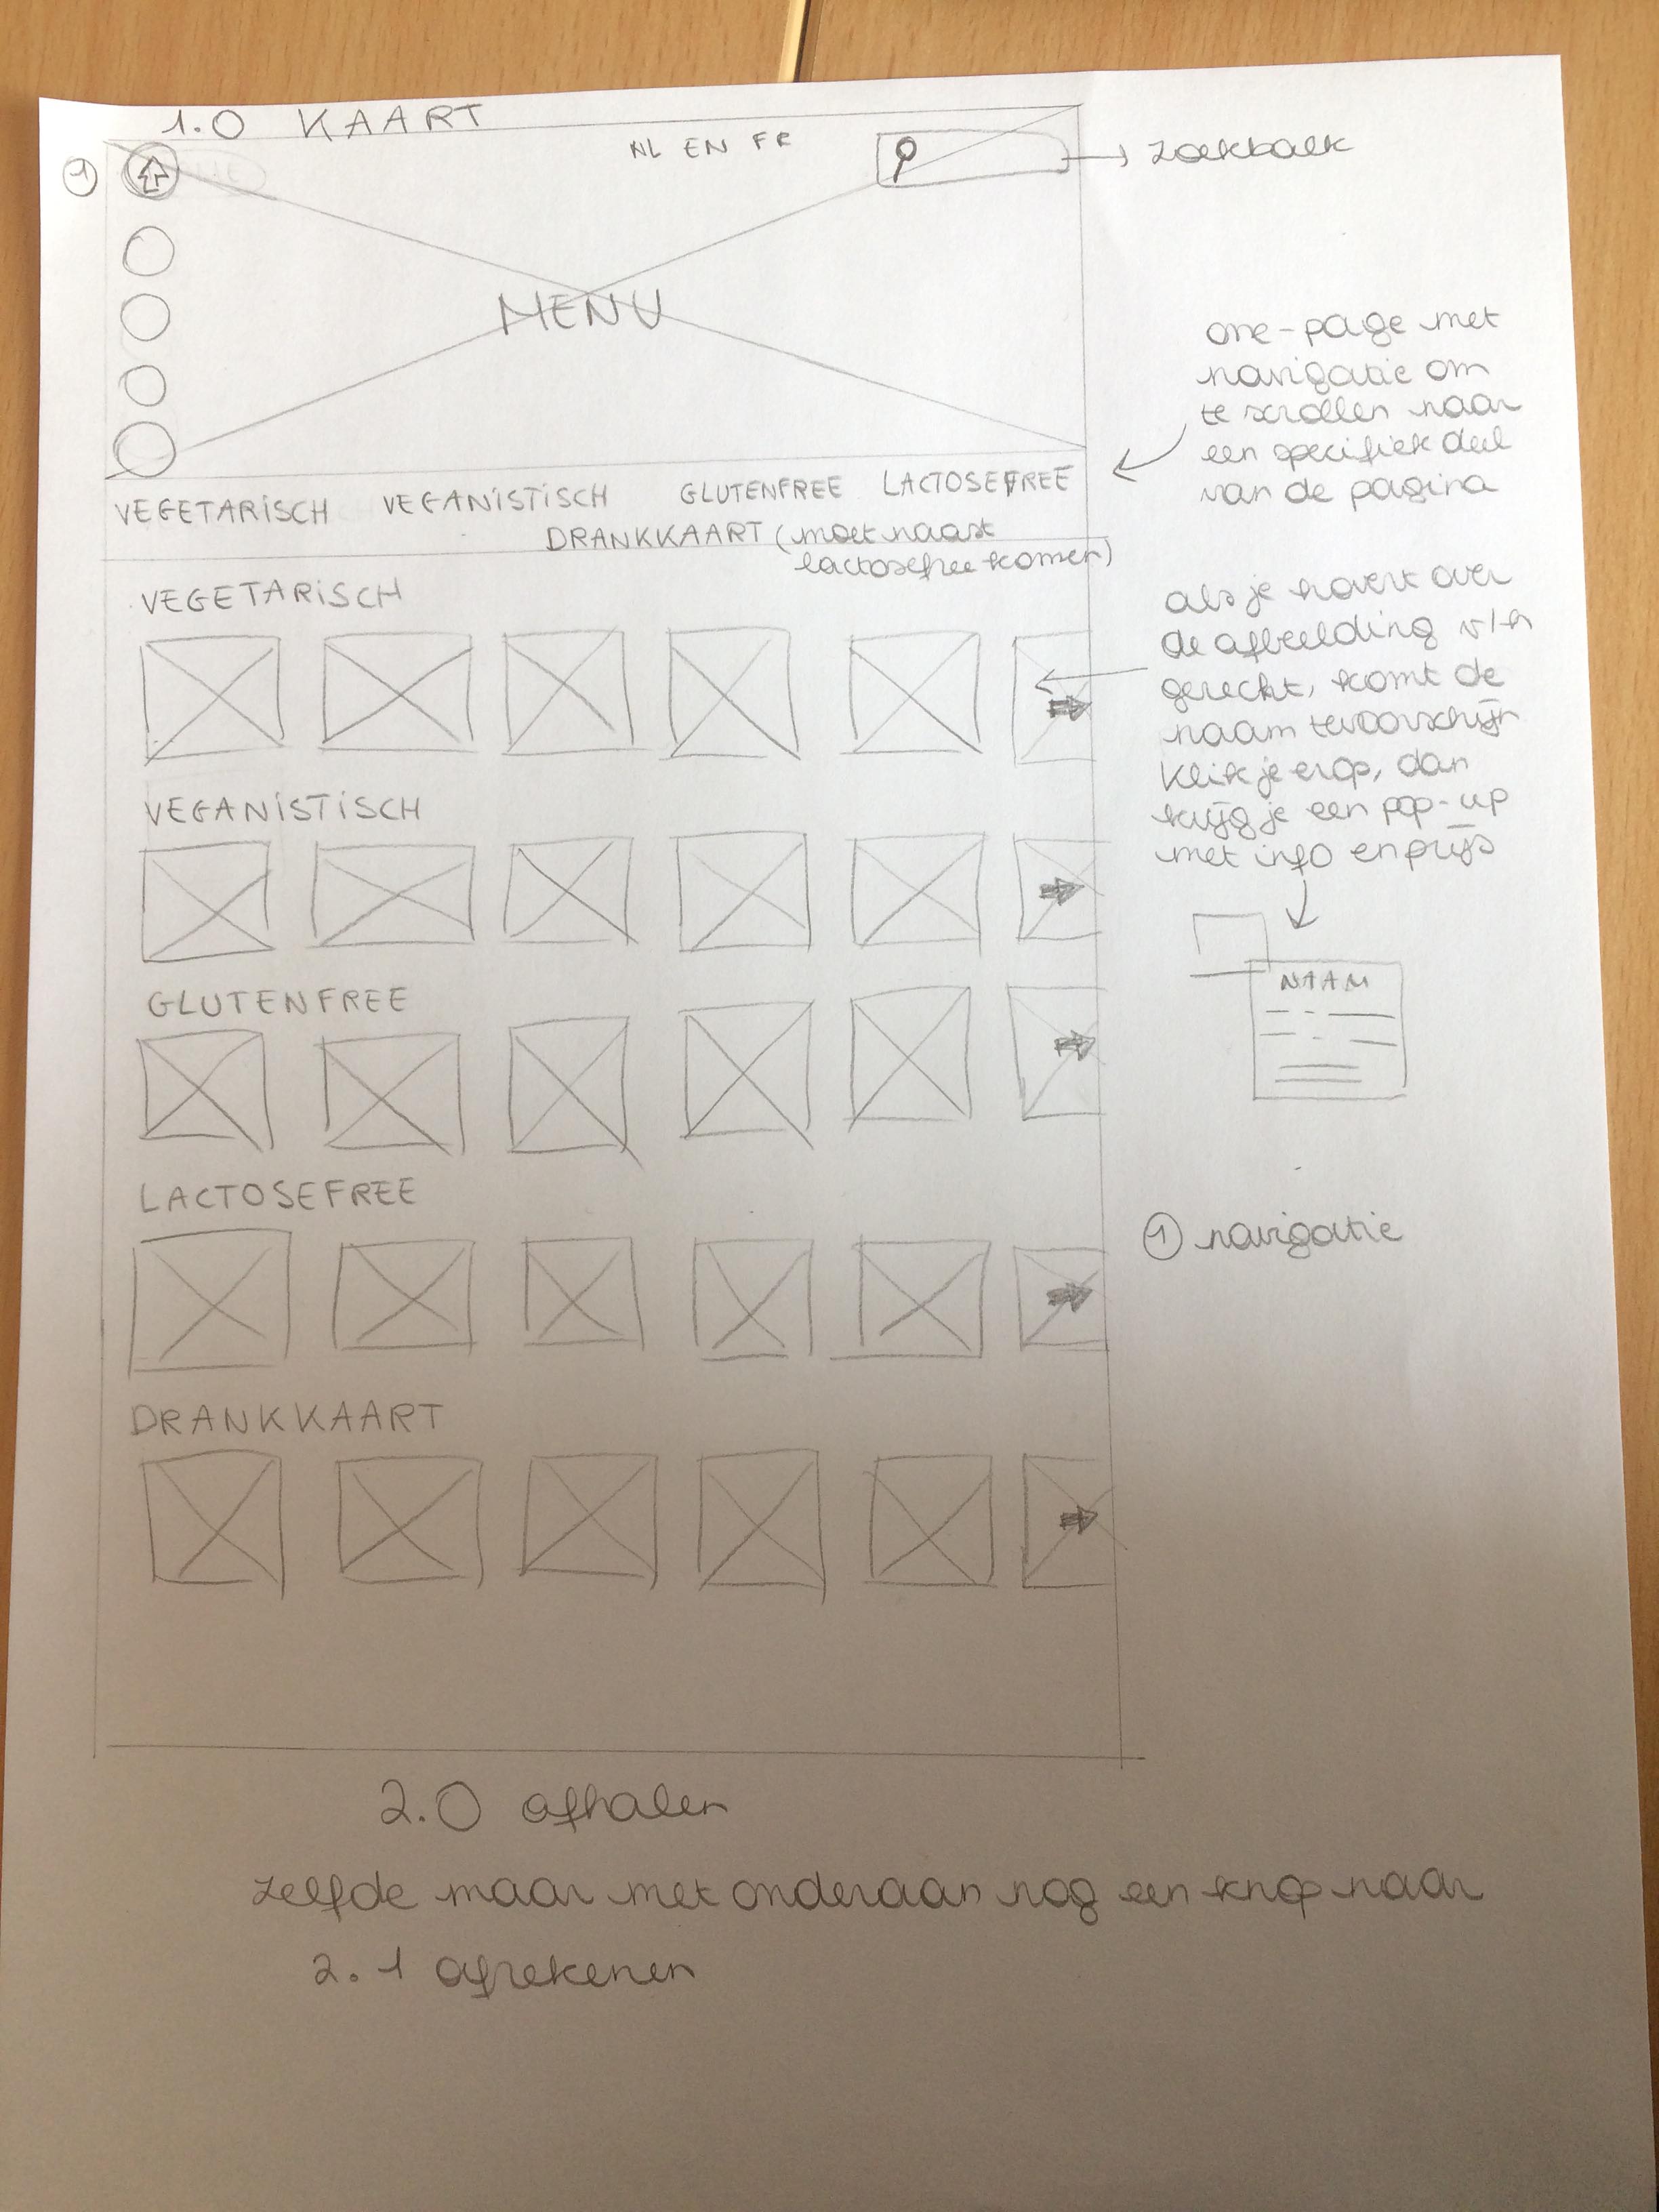 1.0 KAART
1
NL EN FR
zoekbalk
MENU
one-page met
navigatie om
te scrollen naar
een specifiek deel
van de pagina
VEGETARISCH VEGANISTISCH GLUTENFREE LACTOSEFREE
DRANKKAART (moet naast
lactosefree komen)
VEGETARISCH
als je hovert over
de afbeelding v/h
gerecht, komt de
naam tevoorschijn
Klik je erop, dan
krijg je een pop-up
met info en prijs
VEGANISTISCH
NAAM
GLUTENFREE
LACTOSEFREE
1 navigatie
DRANKKAART
2.0 afhalen
zelfde maar met onderaan nog een knop naar
2.1 afrekenen